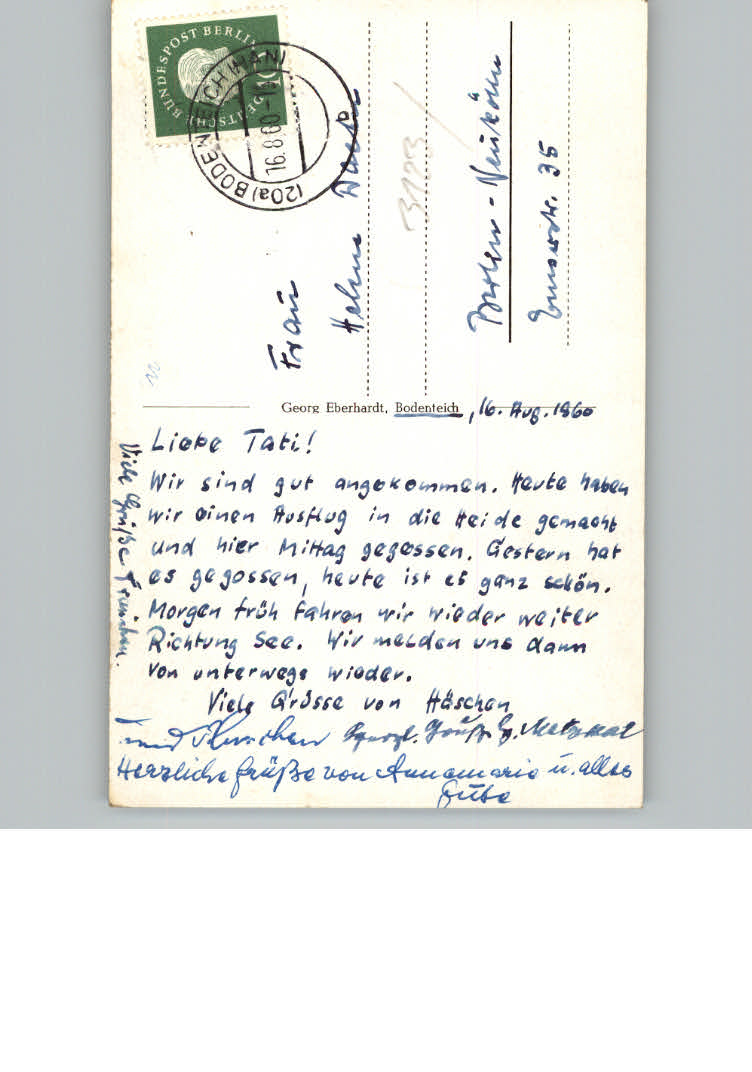 DEUTSCHE BUNDESPOST BERLIN
(20a) BODENTEICH (HAN)
16.8.60
b
Frau
Helene
Berlin-Neukölln
Emserstr. 35
3123
Georg Eberhardt, Bodenteich, 16. Aug. 1960
Liebe Tati!
Wir sind gut angekommen. Heute haben
wir einen Ausflug in die Heide gemacht
und hier Mittag gegessen. Gestern hat
es gegossen, heute ist es ganz schön.
Morgen früh fahren wir wieder weiter
Richtung See. Wir melden uns dann
von unterwegs wieder.
Viele Grüsse von Häschen
und
Herzliche Grüße von Annemarie u. alles
Gute
Viele Grüße